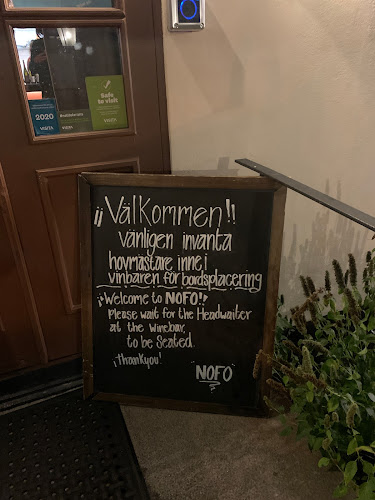 Safe
to visit
VISITA
2020
VISITA
¡¡Välkommen!!
vänligen invänta
hovmästare inne i
vinbaren för bordsplacering
¡¡Welcome to NOFO!!
Please wait for the Headwaiter
at the winebar,
to be seated.
¡Thankyou!
NOFO